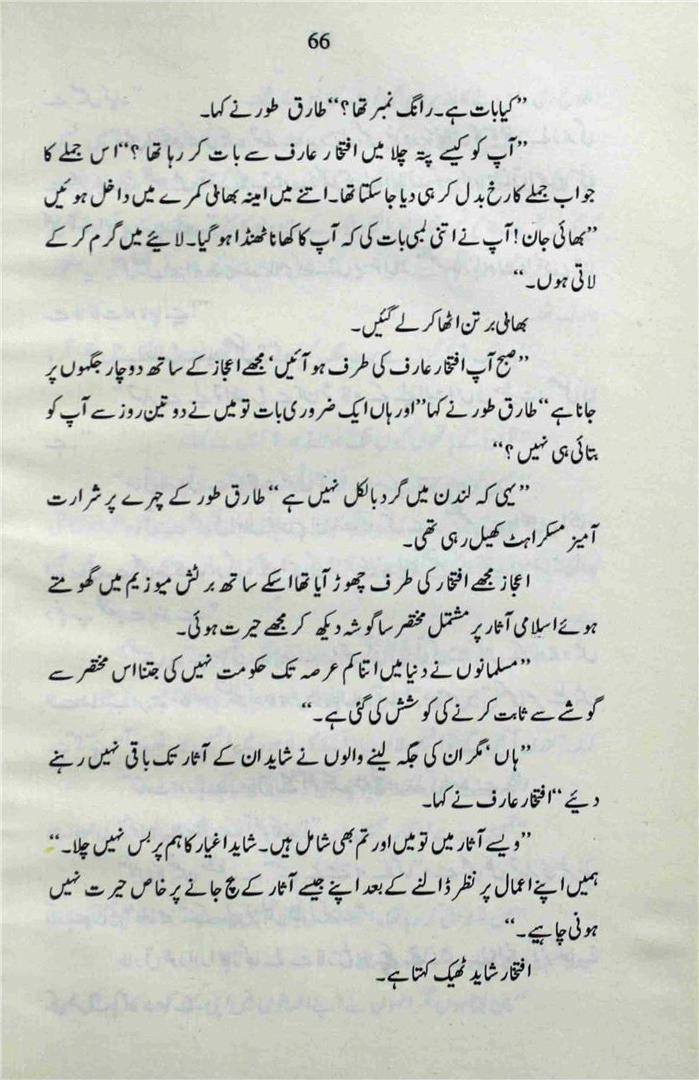 66
”کیا بات ہے۔ رانگ نمبر تھا؟“ طارق طور نے کہا۔
”آپ کو کیسے پتہ چلا میں افتخار عارف سے بات کر رہا تھا؟“ اس جملے کا
جواب جملے کا رخ بدل کر ہی دیا جا سکتا تھا۔ اتنے میں امینہ بھابی کمرے میں داخل ہوئیں
”بھائی جان! آپ نے اتنی لمبی بات کی کہ آپ کا کھانا ٹھنڈا ہو گیا۔ لائیے میں گرم کر کے
لاتی ہوں۔“
بھابی برتن اٹھا کر لے گئیں۔
”صبح آپ افتخار عارف کی طرف ہو آئیں‘ مجھے اعجاز کے ساتھ دو چار جگہوں پر
جانا ہے“ طارق طور نے کہا ”اور ہاں ایک ضروری بات تو میں نے دو تین روز سے آپ کو
بتائی ہی نہیں؟“
”یہی کہ لندن میں گرد بالکل نہیں ہے“ طارق طور کے چہرے پر شرارت
آمیز مسکراہٹ کھیل رہی تھی۔
اعجاز مجھے افتخار کی طرف چھوڑ آیا تھا اسکے ساتھ برٹش میوزیم میں گھومتے
ہوئے اسلامی آثار پر مشتمل مختصر سا گوشہ دیکھ کر مجھے حیرت ہوئی۔
”مسلمانوں نے دنیا میں اتنا کم عرصہ تک حکومت نہیں کی جتنا اس مختصر سے
گوشے سے ثابت کرنے کی کوشش کی گئی ہے۔“
”ہاں‘ مگر ان کی جگہ لینے والوں نے شاید ان کے آثار تک باقی نہیں رہنے
دیئے“ افتخار عارف نے کہا۔
”ویسے آثار میں تو میں اور تم بھی شامل ہیں۔ شاید اغیار کا ہم پر بس نہیں چلا۔“
ہمیں اپنے اعمال پر نظر ڈالنے کے بعد اپنے جیسے آثار کے بچ جانے پر خاص حیرت نہیں
ہونی چاہیے۔“
افتخار شاید ٹھیک کہتا ہے۔